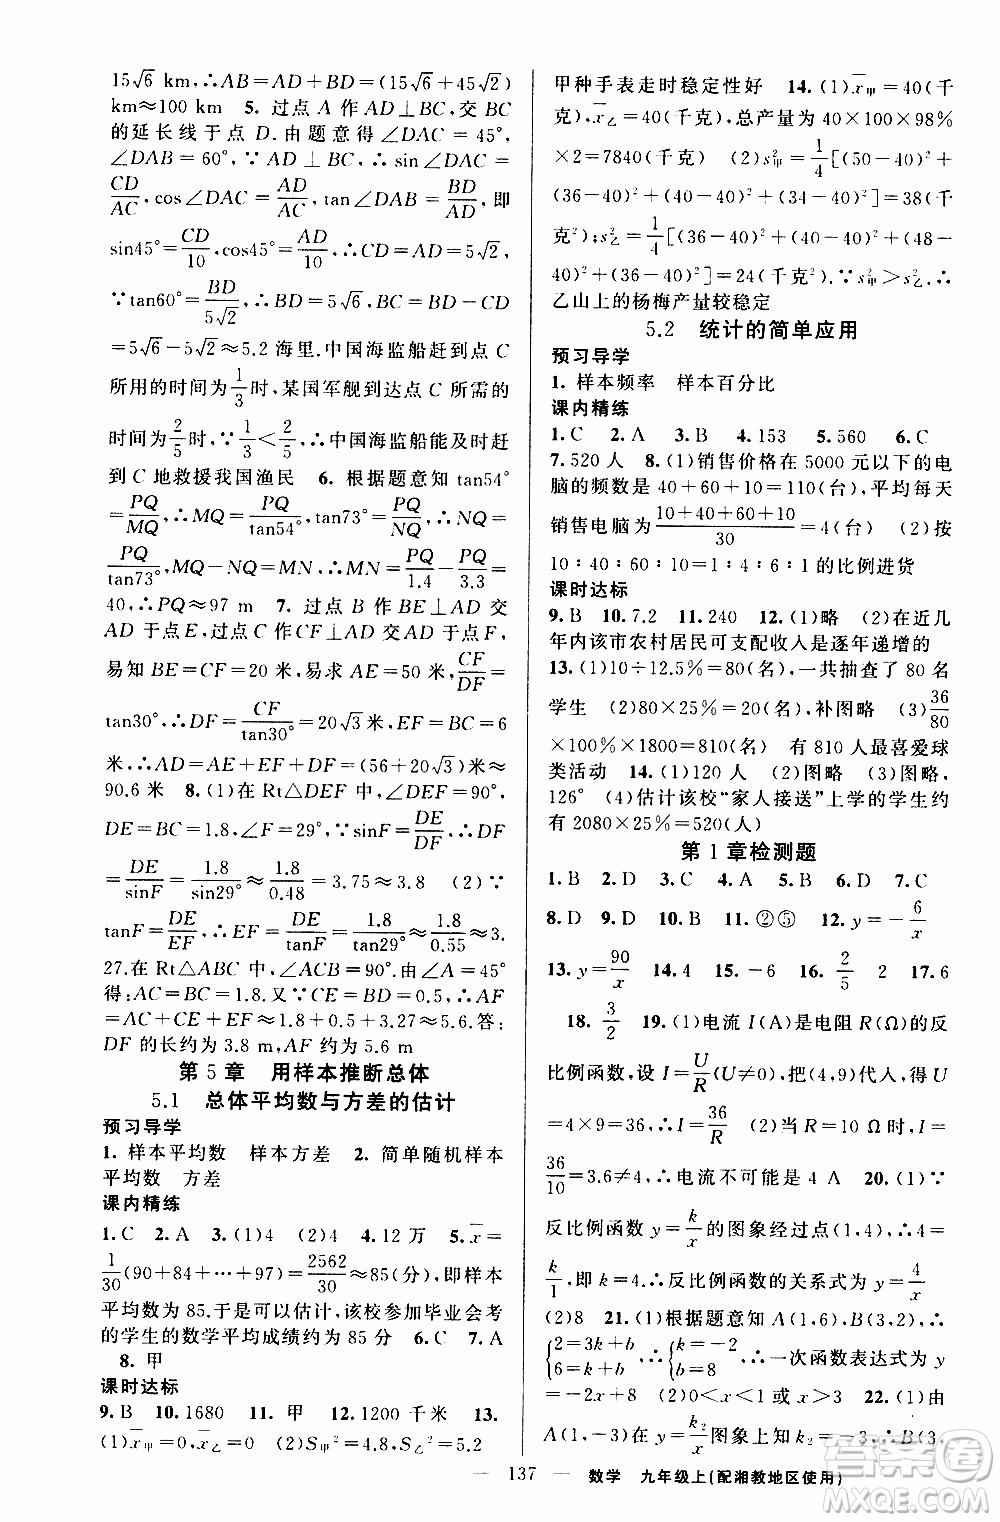 15√6 km,∴AB=AD+BD=(15√6+45√2)
km≈100 km　5. 过点 A 作 AD⊥BC,交 BC
的延长线于点 D. 由题意得∠DAC=45°,
∠DAB=60°,∵AD⊥BC,∴sin∠DAC=
CD/AC,cos∠DAC=AD/AC,tan∠DAB=BD/AD,即
sin45°=CD/10,cos45°=AD/10,∴CD=AD=5√2
∵tan60°=BD/5√2,∴BD=5√6,∴BC=BD-CD
=5√6-5√2≈5.2 海里. 中国海监船赶到点 C
所用的时间为1/3时,某国军舰到达点 C 所需的
时间为2/5时,∵1/3<2/5,∴中国海监船能及时赶
到 C 地救援我国渔民　6. 根据题意知 tan54°
=PQ/MQ,∴MQ=PQ/tan54°,tan73°=PQ/NQ,∴NQ=
PQ/tan73°,MQ-NQ=MN,∴PQ/1.4-PQ/3.3=
40,∴PQ≈97 m　7. 过点 B 作 BE⊥AD 交
AD 于点 E,过点 C 作 CF⊥AD 交 AD 于点 F,
易知 BE=CF=20 米,易求 AE=50 米,CF/DF=
tan30°,∴DF=CF/tan30°=20√3米,EF=BC=6
米,∴AD=AE+EF+DF=(56+20√3)米≈
90.6 米　8. (1)在 Rt△DEF 中,∠DEF=90°,
DE=BC=1.8,∠F=29°,∵sinF=DE/DF,∴DF
=DE/sinF=1.8/sin29°≈1.8/0.48=3.75≈3.8　(2)∵
tanF=DE/EF,∴EF=DE/tanF=1.8/tan29°≈1.8/0.55≈3.
27.在 Rt△ABC 中,∠ACB=90°,∠A=45°
得:AC=BC=1.8.又∵CE=BD=0.5,∴AF
=AC+CE+EF≈1.8+0.5+3.27≈5.6.答:
DF 的长约为 3.8 m,AF 约为 5.6 m
第 5 章　用样本推断总体
5.1　总体平均数与方差的估计
预习导学
1. 样本平均数　样本方差　2. 简单随机样本
平均数　方差
课内精练
1. C　2. A　3. (1)4　(2)4　4. 12 万　5. x̄=
1/30(90+84+…+97)=2562/30≈85(分),即样本
平均数为 85.于是可以估计,该校参加毕业会考
的学生的数学平均成绩约为 85 分　6. C　7. A
8. 甲
课时达标
9. B　10. 1680　11. 甲　12. 1200 千米　13.
(1)x̄甲=0,x̄乙=0　(2)S甲=4.8,S乙=5.2
甲种手表走时稳定性好　14. (1)x̄甲=40(千
克),x̄乙=40(千克),总产量为 40×100×98%
×2=7840(千克)　(2)s²甲=1/4[(50-40)²+
(36-40)²+(40-40)²+(34-40)²]=38(千
克²);s²乙=1/4[(36-40)²+(40-40)²+(48-
40)²+(36-40)²]=24(千克²).∵s²甲>s²乙,∴
乙山上的杨梅产量较稳定
5.2　统计的简单应用
预习导学
1. 样本频率　样本百分比
课内精练
1. C　2. A　3. B　4. 153　5. 560　6. C
7. 520 人　8. (1)销售价格在 5000 元以下的电
脑的频数是 40+60+10=110(台),平均每天
销售电脑为10+40+60+10/30=4(台)　(2)按
10∶40∶60∶10=1∶4∶6∶1 的比例进货
课时达标
9. B　10. 7.2　11. 240　12. (1)略　(2)在近几
年内该市农村居民可支配收入是逐年递增的
13. (1)10÷12.5%=80(名),一共抽查了 80 名
学生　(2)80×25%=20(名),补图略　(3)36/80
×100%×1800=810(名)　有 810 人最喜爱球
类活动　14. (1)120 人　(2)图略　(3)图略,
126°　(4)估计该校“家人接送”上学的学生约
有 2080×25%=520(人)
第 1 章检测题
1. B　2. D　3. C　4. A　5. B　6. D　7. C
8. D　9. D　10. B　11. ②⑤　12. y=-6/x
13. y=90/x　14. 4　15. -6　16. 2/5　2　17. 6
18. 3/2　19. (1)电流 I(A)是电阻 R(Ω)的反
比例函数,设 I=U/R,把(4,9)代入,得 U=
4×9=36,∴I=36/R　(2)当 R=10 Ω时,I=
36/10=3.6≠4,∴电流不可能是 4 A　20. (1)∵
反比例函数 y=k/x的图象经过点(1,4),∴4=
k/1,即 k=4,∴反比例函数的表达式为 y=4/x
(2)8　21. (1)根据题意知 A(1,6),B(3,2)
{2=3k+b 6=k+b,∴{k=-2 b=8,∴一次函数表达式为 y=
-2x+8　(2)0<x<1 或 x>3　22. (1)由
A(1,-3)在 y=k₂/x图象上知 k₂=-3,∴B(3,
137　数学　九年级上(配湘教地区使用)
答案圈
MXQE.COM